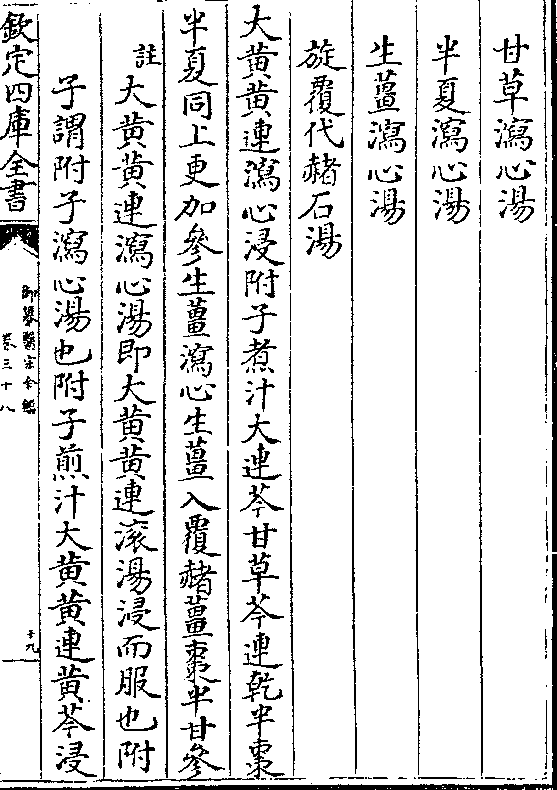 甘草瀉心湯
半夏瀉心湯
生薑瀉心湯
旋覆代赭石湯
大黄黄連瀉心浸附子煮汁大連芩甘草芩連乾半棗
半夏同上更加參生薑瀉心生薑入覆赭薑棗半甘參
註大黄黄連瀉心湯即大黄黄連滚湯浸而服也附
子謂附子瀉心湯也附子煎汁大黄黄連黄芩浸
欽定四庫全書
御纂醫宗金鑑
卷三十八
十九